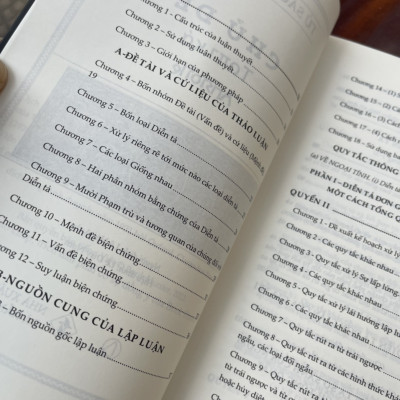 Chương 1 – Cấu trúc của luận thuyết
Chương 2 – Sử dụng luận thuyết
Chương 3 – Giới hạn của phương pháp
A-ĐỀ TÀI VÀ CỨ LIỆU CỦA THẢO LUẬN
Chương 4 – Bốn nhóm Đề tài (Vấn đề) và cứ liệu
19
Chương 5 – Bốn loại Diễn tả
Chương 6 – Xử lý riêng rẽ tới mức nào các loại diễn tả
Chương 7 – Các loại Giống nhau
Chương 8 – Hai phân nhóm bằng chứng của Diễn tả
Chương 9 – Mười Phạm trù và tương quan của chúng đối với
Diễn tả
Chương 10 – Mệnh đề biện chứng
Chương 11 – Vấn đề biện chứng
Chương 12 – Suy luận biện chứng
B-NGUỒN CUNG CỦA LẬP LUẬN
– Bốn nguồn gốc lập luận
Chương 14 – (1)
Chương 15 – (2)
Chương 16 – (3) Cách
Chương 17 – (4) Cách
Chương 18 – Sử dụng
QUY TẮC THÔNG
PHẦN I – DIỄN TẢ ĐƠN G
MỘT CÁCH TỔNG Q
QUYỂN II
Chương 1 – Đề xuất kế hoạch xử lý
Chương 2 – Các quy tắc khác nhau
Chương 3 – Quy tắc xử lý Sự lấp lửng
Chương 4 – Các quy tắc khác nhau
Chương 5 – Quy tắc xử lý lái hướng lập luận
Chương 6 – Các quy tắc khác nhau
Chương 7 – Quy tắc rút ra từ trái ngược
Chương 8 – Quy tắc rút ra từ các hình thức khác
ngẫu, các loại đối ngẫu
Chương 9 – Quy tắc rút ra từ
từ trái ngược và từ
hoặc hủy diệt